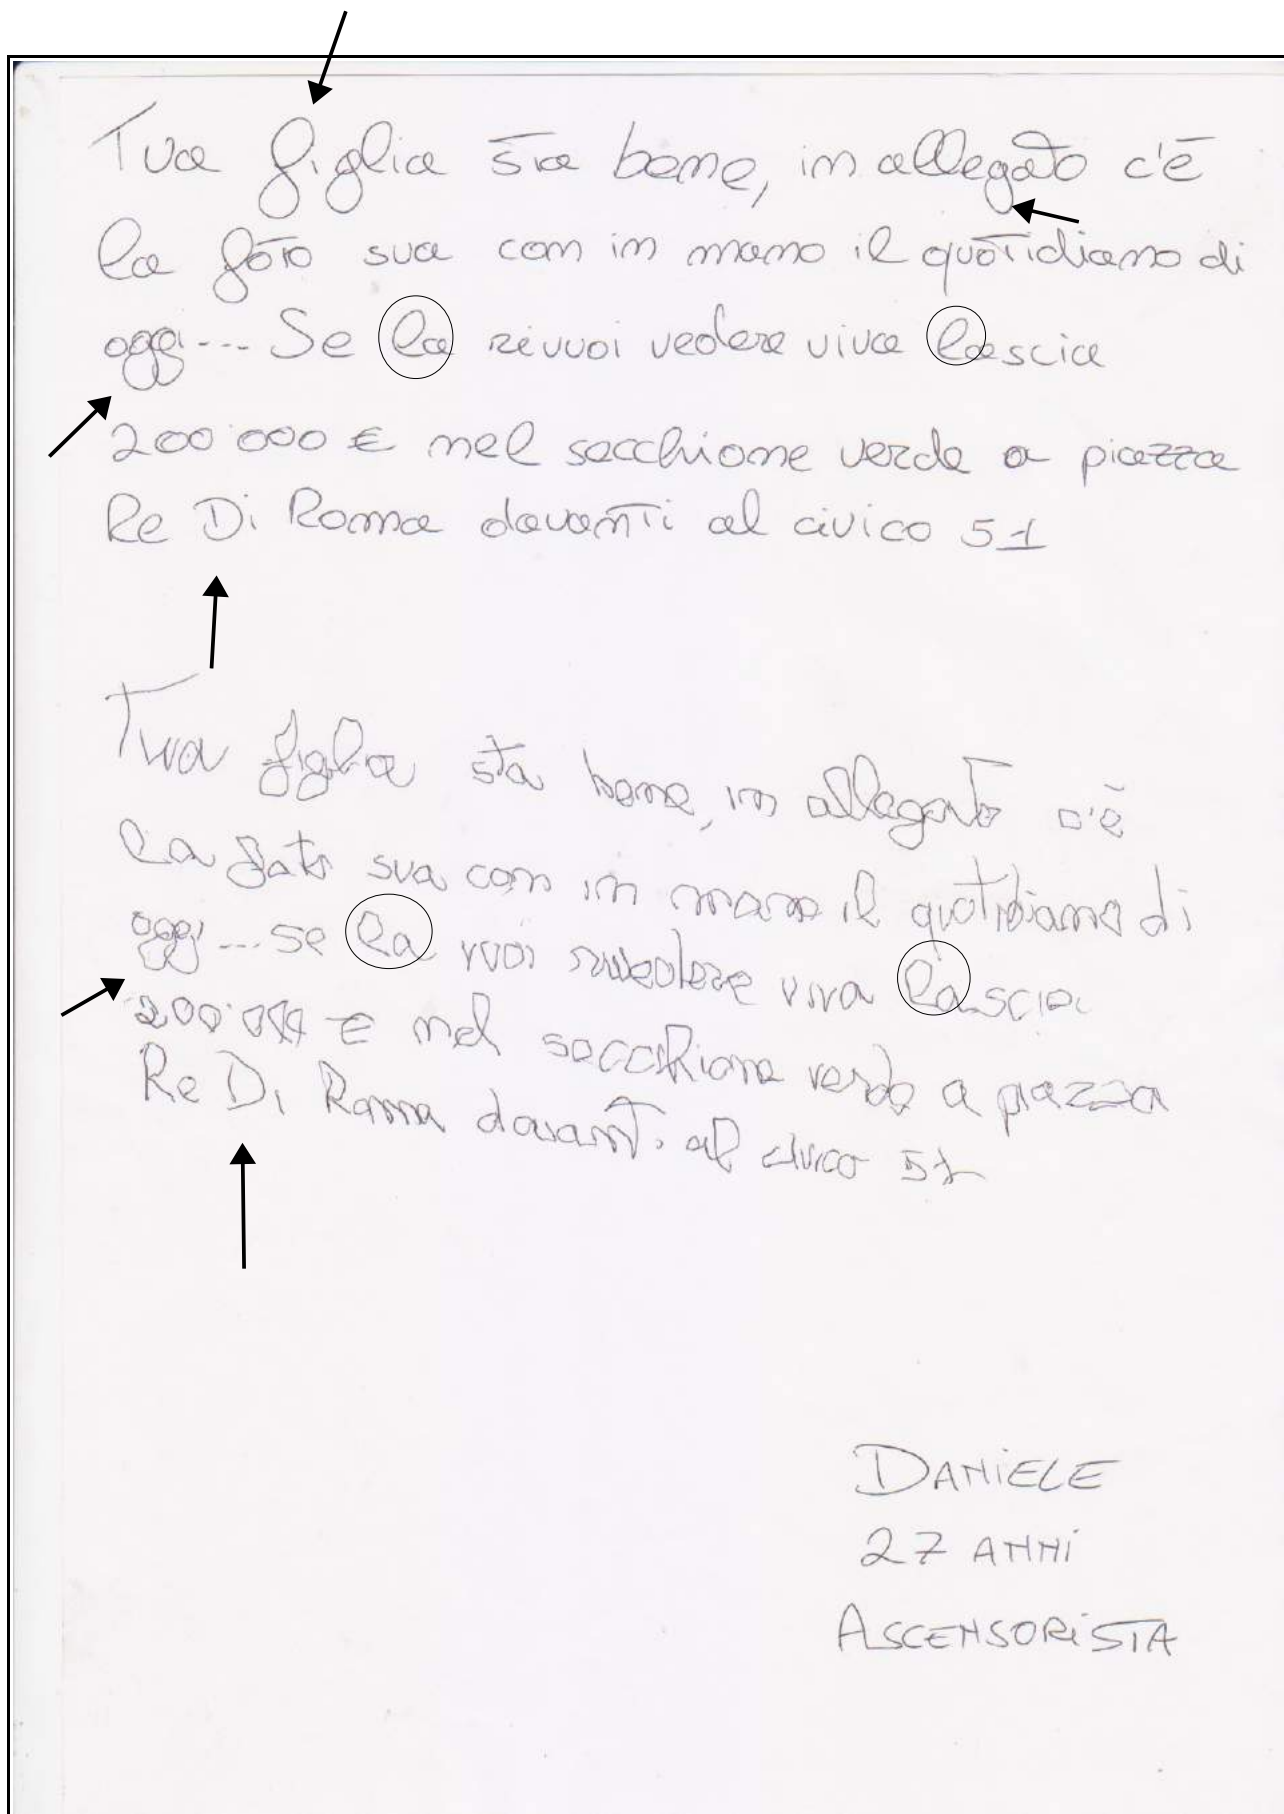 Tua figlia sta bene, in allegato c'è
la foto sua con in mano il quotidiano di
oggi... Se la rivuoi vedere viva lascia
200'000 € nel secchione verde a piazza
Re Di Roma davanti al civico 51
Tua figlia sta bene, in allegato c'è
la foto sua con in mano il quotidiano di
oggi... se la vuoi rivedere viva lascia
200'000 € nel secchione verde a piazza
Re Di Roma davanti al civico 51
DANiELE
27 ANNi
ASCENSORiSTA